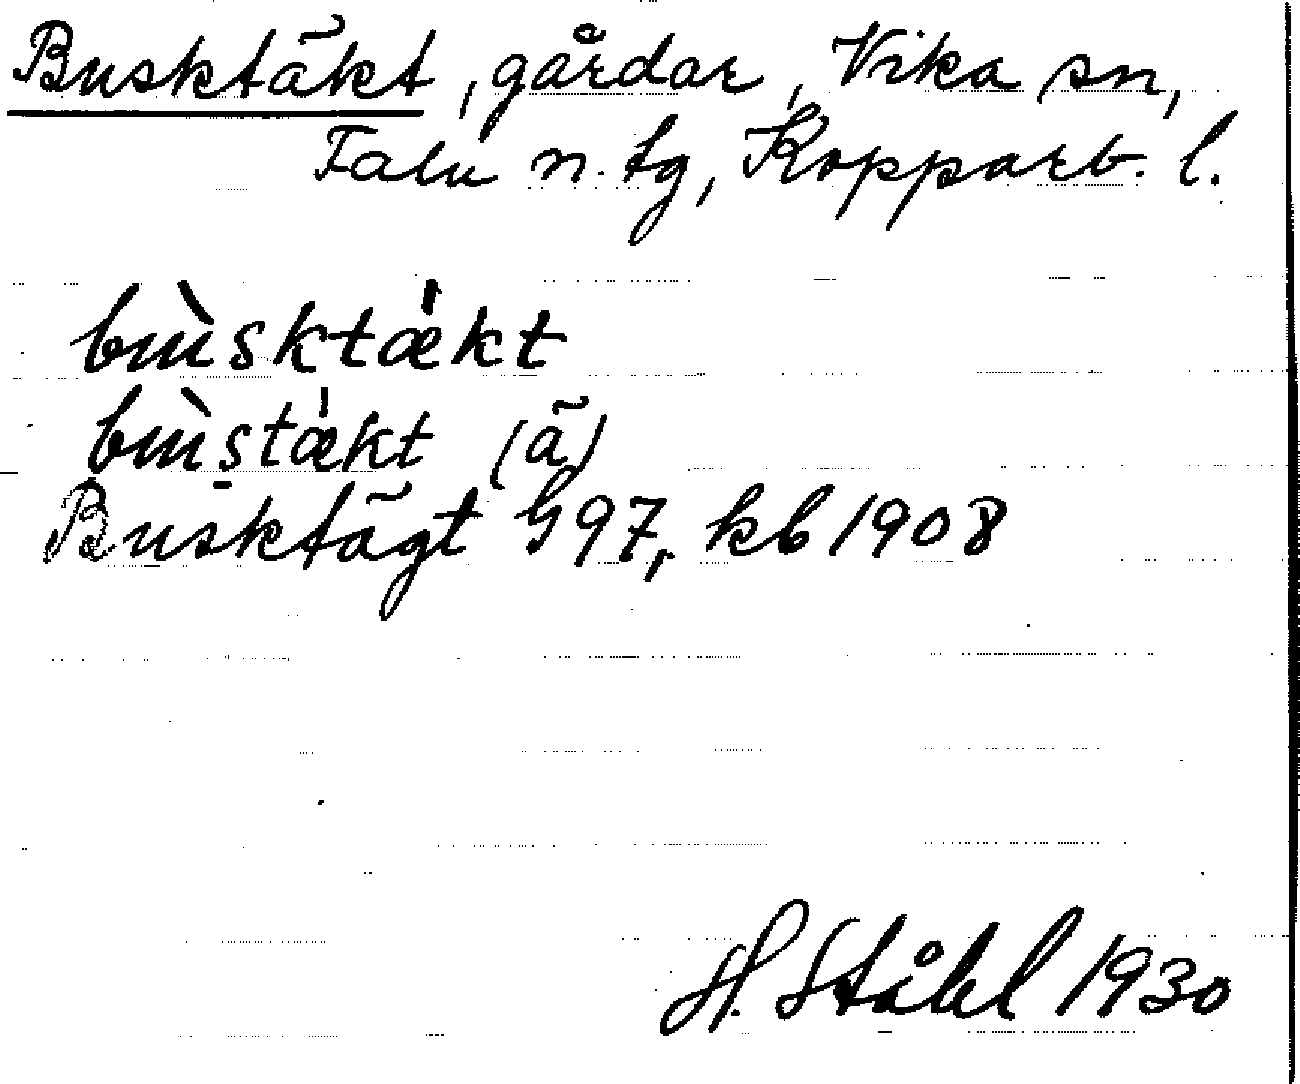 Busktäkt, gårdar, Vika sn,
Falu n. tg, Kopparb. l.
bùsktǽkt
bùs̱tǽkt (ä)
Busktägt G97, kb 1908
H. Ståhl 1930